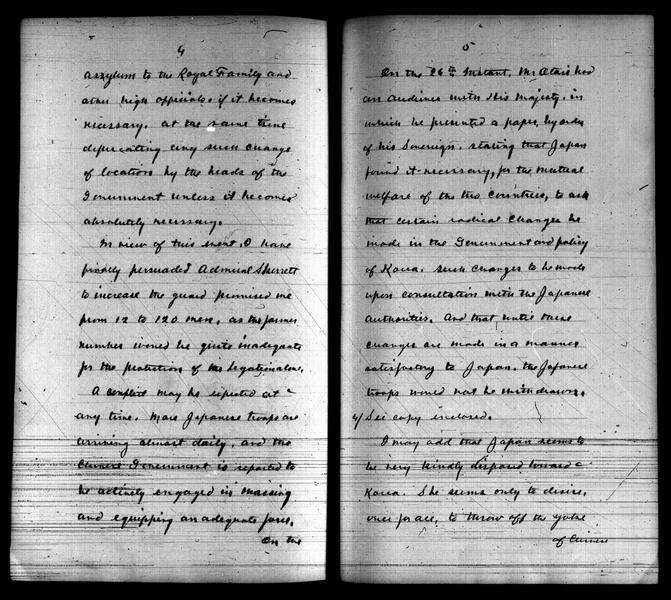 4
aszylum to the Royal Family and
other high officials, if it becomes
necessary, at the same time
depricating any such change
of location by the heads of the
Government unless it becomes
absolutely necessary.
In view of this event, I have
finally persuaded Admiral Skerrett
to increase the guard promised me
from 12 to 120 men, as the former
number would be quite inadequate
for the protection of this Legation alone.
A conflict may be expected at
any time. More Japanese troops are
arriving almost daily, and the
Chinese Government is reported to
be actively engaged in massing
and equipping an adequate force.
On the
5
On the 26th Instant, Mr Otori had
an audience with His Majesty, in
which he presented a paper, by order
of his Sovereign, stating that Japan
found it necessary, for the mutual
welfare of the two Countries, to ask
that certain radical changes be
made in the Government and policy
of Korea, such changes to be made
upon consultation with the Japanese
Authorities. And that until these
changes are made in a manner
satisfactory to Japan, the Japanese
troops would not be withdrawn.
4/ See copy inclosed.
I may add that Japan seems to
be very kindly disposed toward
Korea. She seems only to desire,
once for all, to throw off the yoke
of Chinese